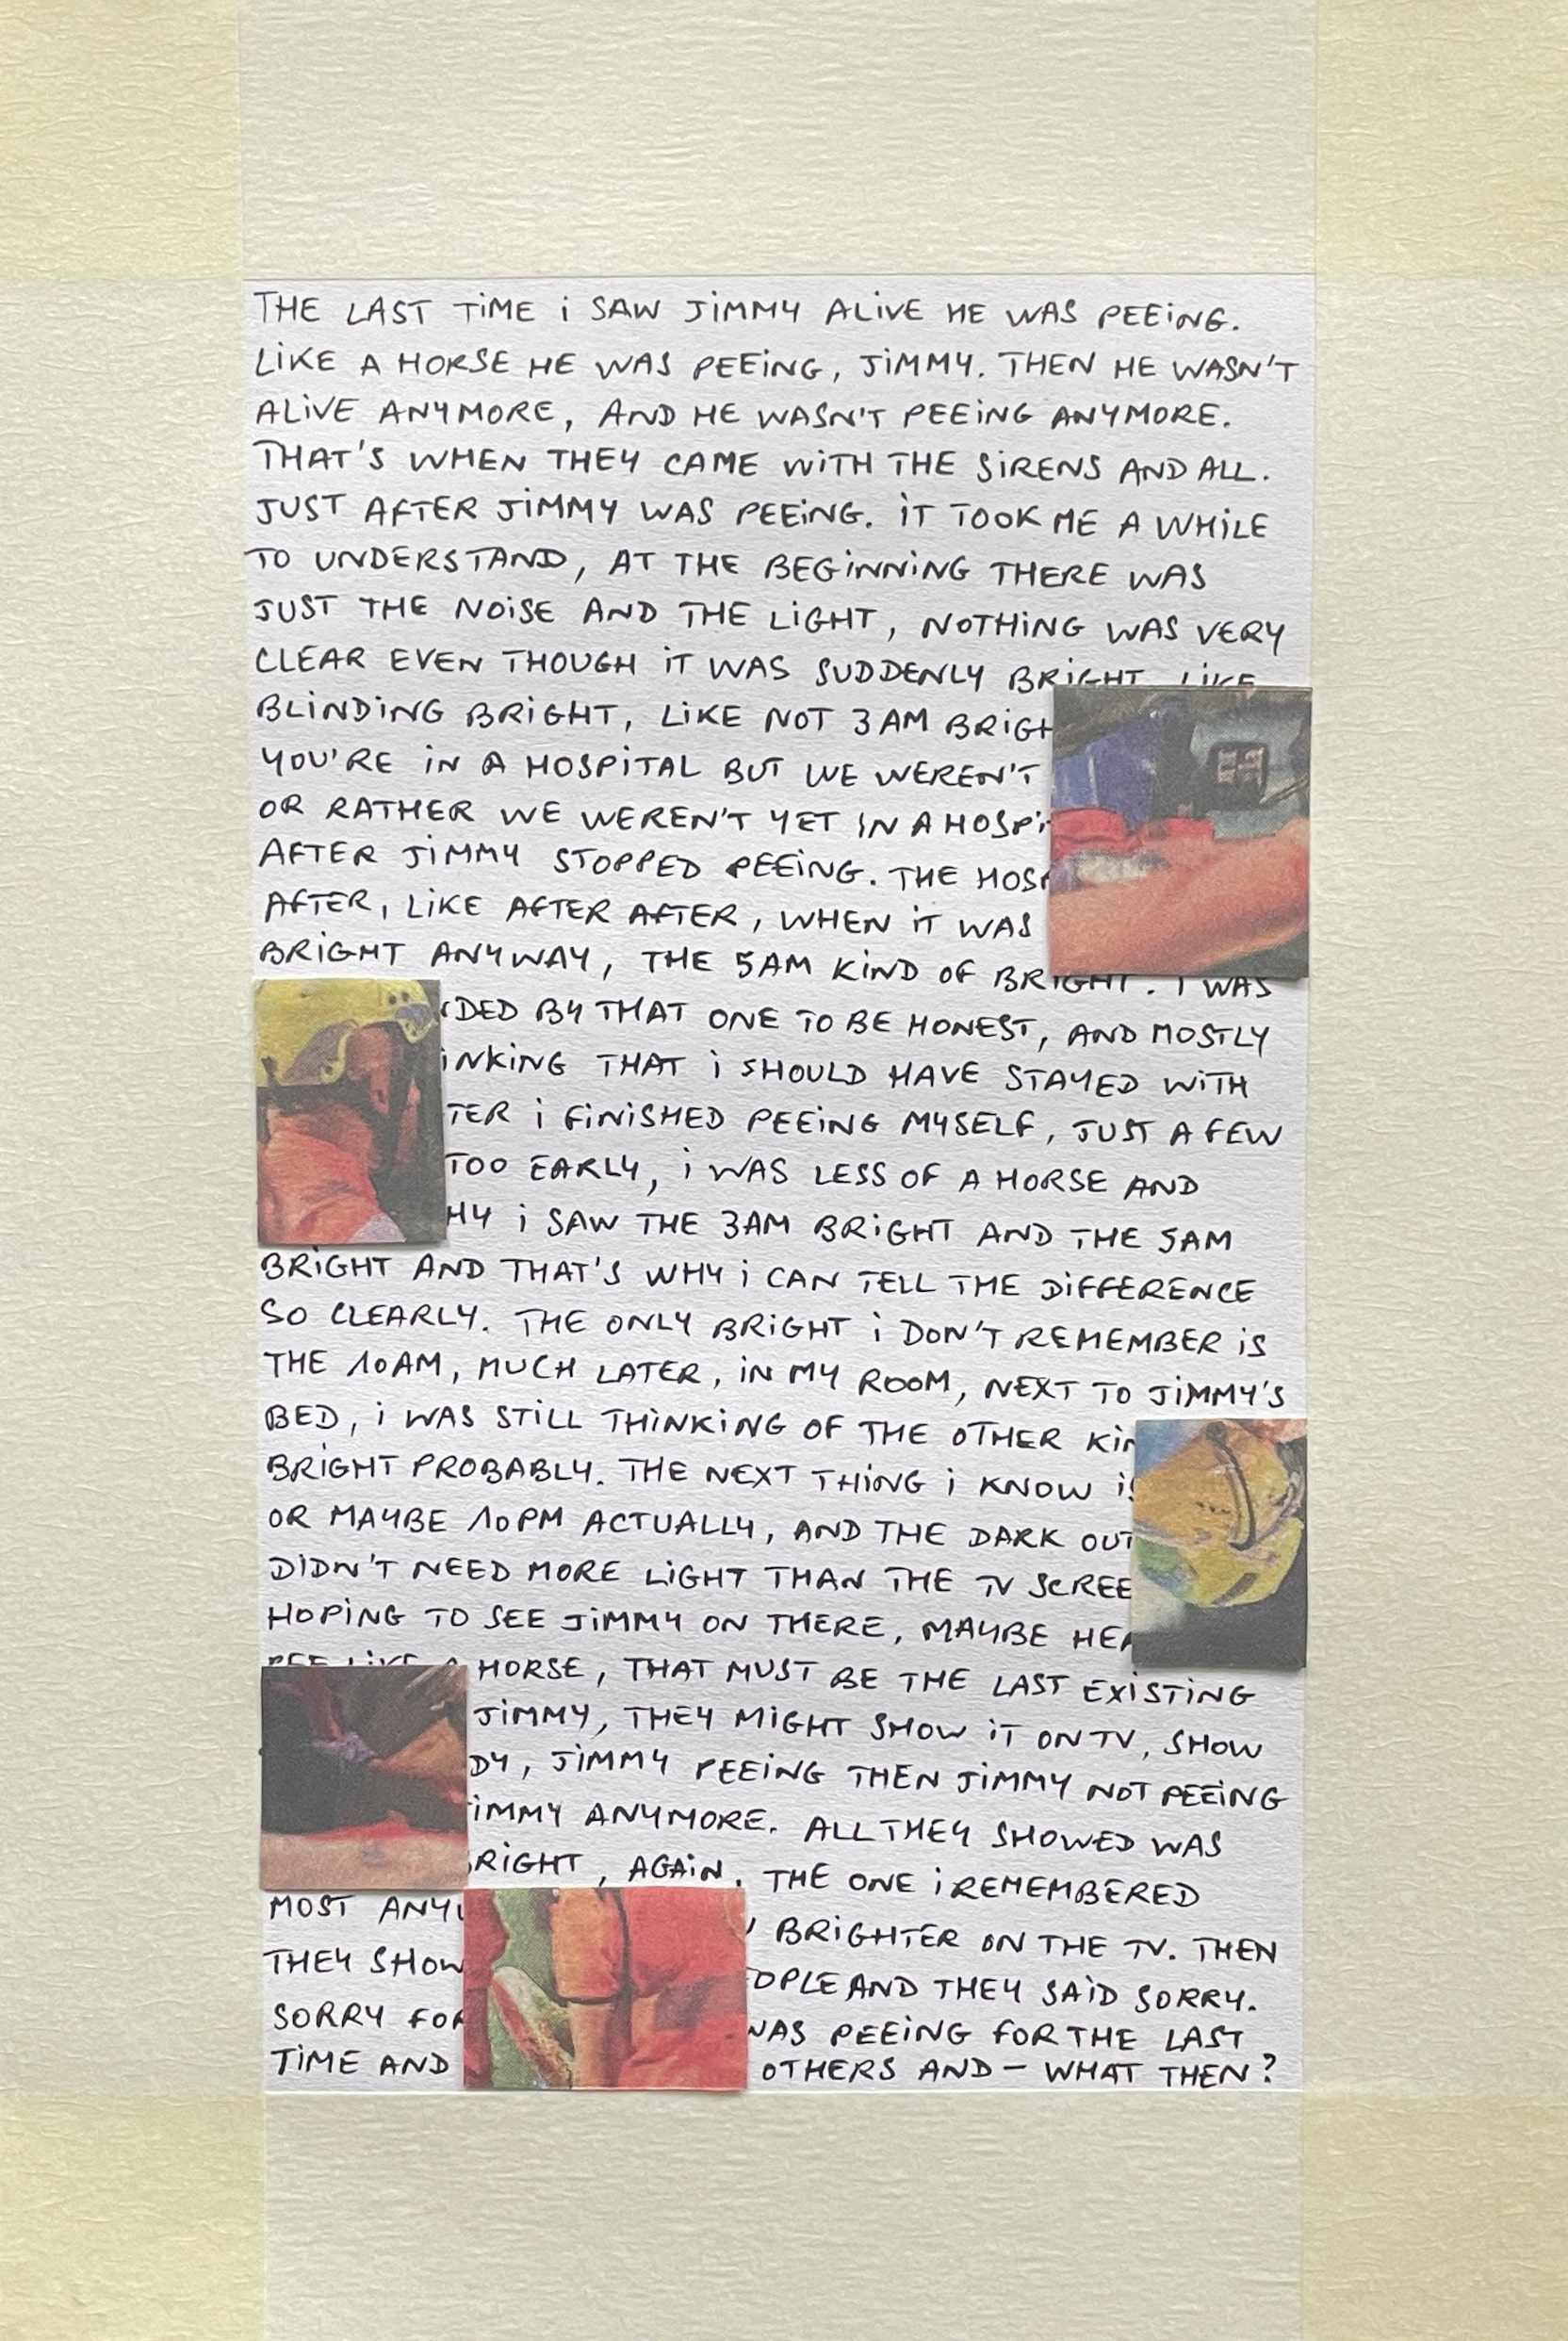 THE LAST TIME I SAW JIMMY ALIVE HE WAS PEEING.
LIKE A HORSE HE WAS PEEING, JIMMY. THEN HE WASN'T
ALIVE ANYMORE, AND HE WASN'T PEEING ANYMORE.
THAT'S WHEN THEY CAME WITH THE SIRENS AND ALL.
JUST AFTER JIMMY WAS PEEING. IT TOOK ME A WHILE
TO UNDERSTAND, AT THE BEGINNING THERE WAS
JUST THE NOISE AND THE LIGHT, NOTHING WAS VERY
CLEAR EVEN THOUGH IT WAS SUDDENLY BRIGHT, LIKE
BLINDING BRIGHT, LIKE NOT 3AM
YOU'RE IN A HOSPITAL BUT WE WEREN'T
OR RATHER WE WEREN'T YET IN A
AFTER JIMMY STOPPED PEEING. THE
AFTER, LIKE AFTER AFTER, WHEN IT WAS
BRIGHT ANYWAY, THE 5AM KIND OF BRIGHT. I WAS
BY THAT ONE TO BE HONEST, AND MOSTLY
THAT I SHOULD HAVE STAYED WITH
I FINISHED PEEING MYSELF, JUST A FEW
TOO EARLY, I WAS LESS OF A HORSE AND
I SAW THE 3AM BRIGHT AND THE 5AM
BRIGHT AND THAT'S WHY I CAN TELL THE DIFFERENCE
SO CLEARLY. THE ONLY BRIGHT I DON'T REMEMBER IS
THE 10AM, MUCH LATER, IN MY ROOM, NEXT TO JIMMY'S
BED, I WAS STILL THINKING OF THE OTHER
BRIGHT PROBABLY. THE NEXT THING I KNOW
OR MAYBE 10PM ACTUALLY, AND THE DARK
DIDN'T NEED MORE LIGHT THAN THE TV
HOPING TO SEE JIMMY ON THERE, MAYBE
PEE LIKE A HORSE, THAT MUST BE THE LAST EXISTING
JIMMY, THEY MIGHT SHOW IT ON TV, SHOW
JIMMY PEEING THEN JIMMY NOT PEEING
ANYMORE. ALL THEY SHOWED WAS
BRIGHT, AGAIN, THE ONE I REMEMBERED
MOST
BRIGHTER ON THE TV. THEN
THEY
AND THEY SAID SORRY.
SORRY
WAS PEEING FOR THE LAST
TIME AND
OTHERS AND – WHAT THEN?